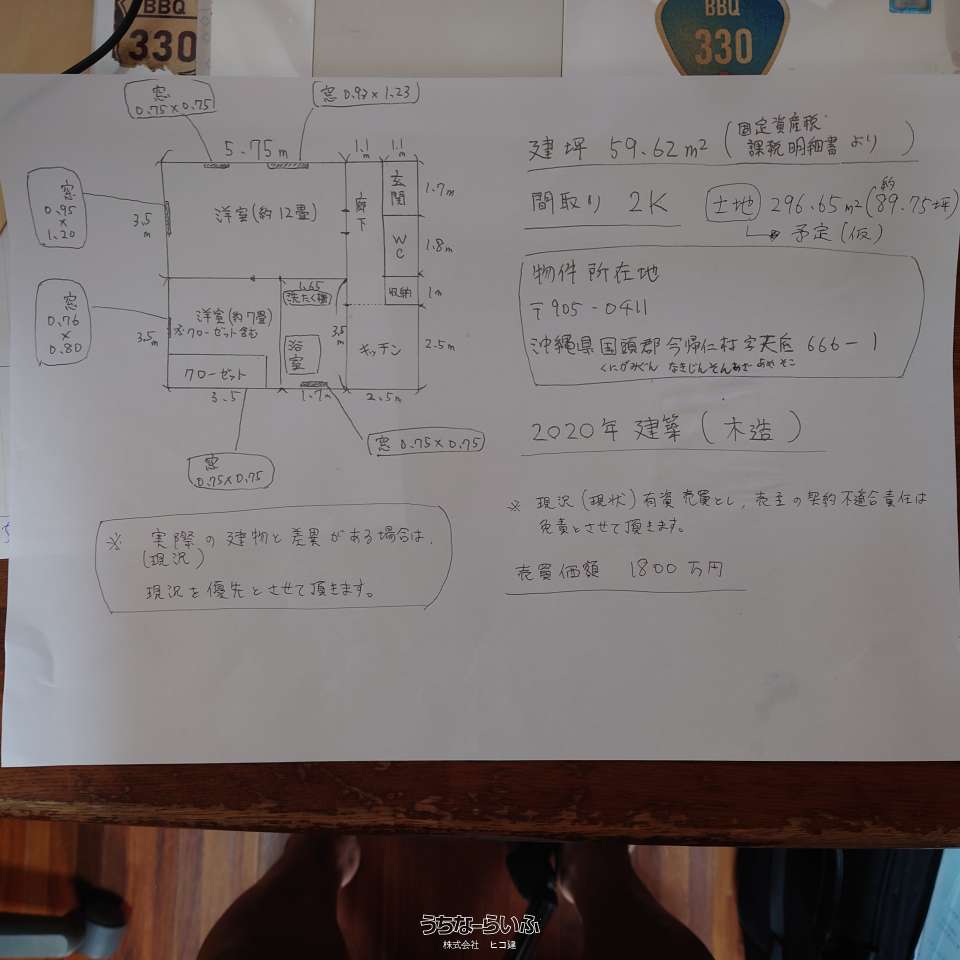 BBQ
330
BBQ
330
窓
0.75×0.75
窓 0.93×1.23
5.75m
1.1m
1.1m
窓
0.95
×
1.20
3.5m
洋室(約12畳)
廊下
玄関
1.7m
WC
1.8m
収納
1m
1.65
洗たく機
窓
0.76
×
0.80
3.5m
洋室(約7畳)
※クローゼット含む
浴室
3.5m
キッチン
2.5m
クローゼット
3.5
1.7m
2.5m
窓 0.75×0.75
窓
0.75×0.75
※ 実際の建物と差異がある場合は、
(現況)
現況を優先とさせて頂きます。
建坪 59.62m² (固定資産税 課税明細書 より)
間取り 2K
土地 296.65m² (約89.75坪)
予定(仮)
物件所在地
〒905-0411
沖縄県国頭郡今帰仁村字天底 666-1
くにがみぐん なきじんそんあざ あめそこ
2020年 建築 (木造)
※ 現況(現状)有資売買とし、売主の契約不適合責任は
免責とさせて頂きます。
売買価額 1800万円
うちなーらいふ
株式会社 ヒコ建